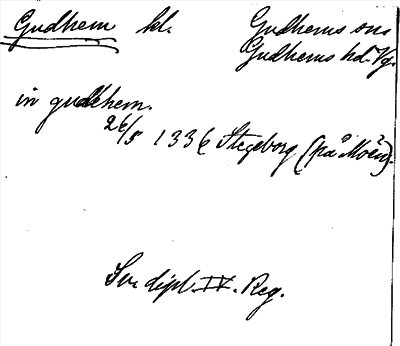 Gudhem kl. Gudhems sns
Gudhems hd. Vg.
in gudhem.
26/5 1336 Stegeborg (på Möen?).
Sv. dipl. IV. Reg.